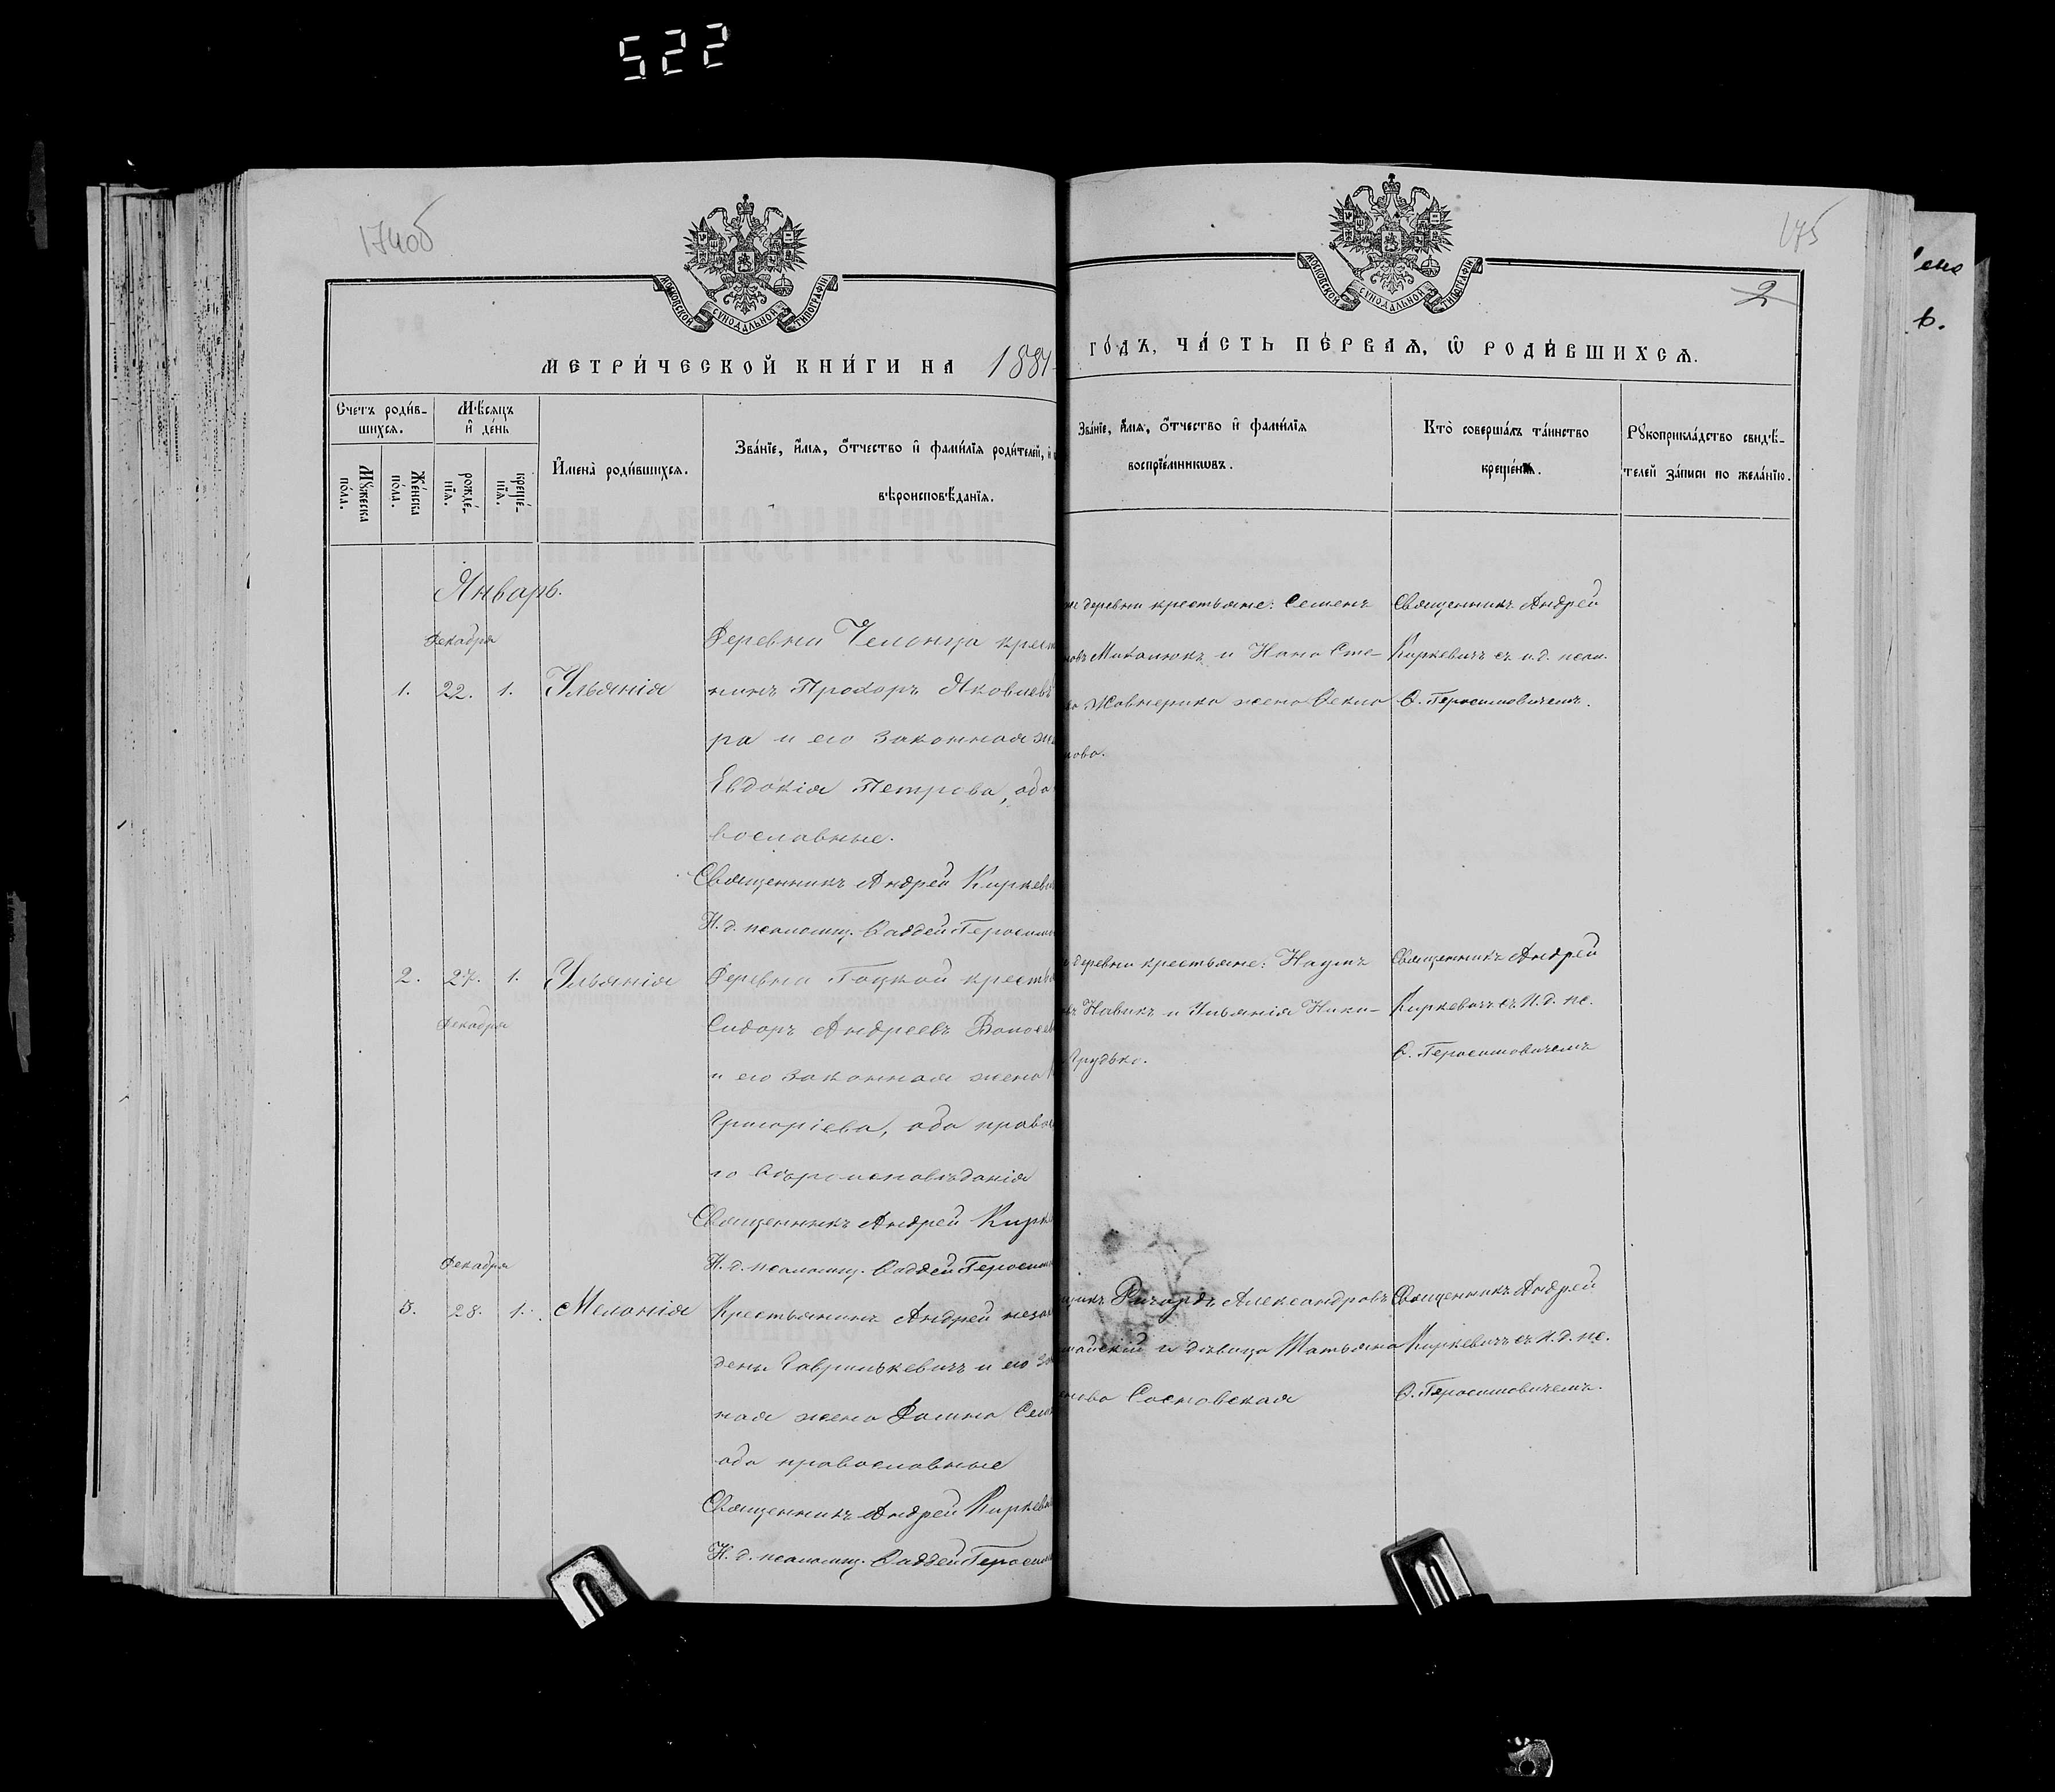 522
174об
175
2
МОСКОВСКОЙ СѴНОДАЛЬНОЙ ТИПОГРАФІИ
МОСКОВСКОЙ СѴНОДАЛЬНОЙ ТИПОГРАФІИ
МЕТРИ́ЧЕСКОЙ КНИ́ГИ НА 1884
ГО́ДЪ, ЧА́СТЬ ПЕ́РВАѦ, Ѿ РОДИ́ВШИХСѦ.
Счетъ роди́в-
шихсѧ.
Мѣсѧцъ
и҆ де́нь
Мꙋ́жеска
по́ла.
Же́нска
по́ла.
рожде́-
нїѧ.
креще́-
нїѧ.
И҆мена̀ роди́вшихсѧ.
Зва́нїе, и҆́мѧ, ѻ҆́тчество и҆ фами́лїѧ роди́телей, и҆
вѣроисповѣ́данїѧ.
Зва́нїе, и҆́мѧ, ѻ҆́тчество и҆ фами́лїѧ
воспрїе́мникѡвъ.
Кто̀ соверша́лъ та́инство
креще́нїѧ.
Рꙋкоприкла́дство свидѣ́-
телей за́писи по жела́нїю.
Январь.
Декабря
1. 22. 1. Ульянія
Деревни Челонца крест
нинъ Прохоръ Яковлевъ
ра и его законная же
Евдокія Петрова, оба
вославные.
Священникъ Андрей Киркев
И.д. псаломщ. Ѳаддей Геросим
деревни крестьяне: Семенъ
новъ Миколюкъ и Нана Сте-
Жовнерика жена Ѳекла
нова.
Священникъ Андрей
Киркевичъ съ и.д. псал.
Ѳ. Геросимовичемъ.
2. 27. 1. Ульянія
Декабря
Деревни Гоцкой крестья
Сидоръ Андреевъ Волосев
и его законная жена
Григоріева, оба право
го вѣроисповѣданія
Священникъ Андрей Кирк
И.д. псаломщ. Ѳаддей Геросим
деревни крестьяне: Наумъ
Новикъ и Ульянія Ники-
Грудько.
Священникъ Андрей
Киркевичъ съ И.д. пс.
Ѳ. Геросимовичемъ
Декабря
3. 28. 1. Мелонія
Крестьянинъ Андрей неза
дены Гаврилькевичъ и его за
ная жена Домна Сем
оба православные
Священникъ Андрей Киркев
И.д. псаломщ. Ѳаддей Геросим
Ричардъ Александровъ
и дѣвица Татьяна
нова Сосновская
Священникъ Андрей
Киркевичъ съ И.д. пс.
Ѳ. Геросимовичемъ.